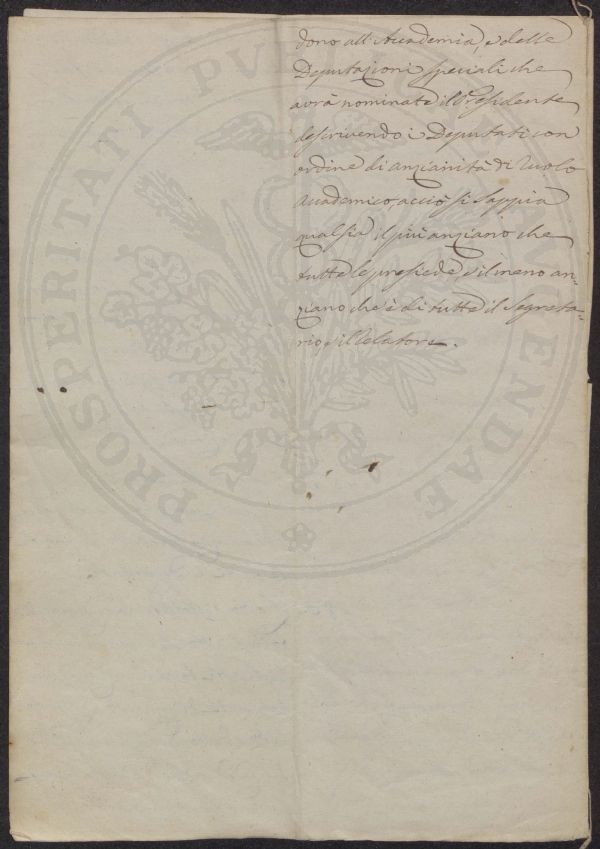 dono all'Accademia, e delle
Deputazioni speciali che
avrà nominate il Presidente
descrivendo i Deputati con
ordine di anzianità di Ruolo
Accademico, acciò si sappia
qual sia il più anziano che
tutte le presiede, e il meno an=
ziano che è di tutte il Segreta=
rio, e il Relatore.
PROSPERITATI PUBLICAE AUGENDAE